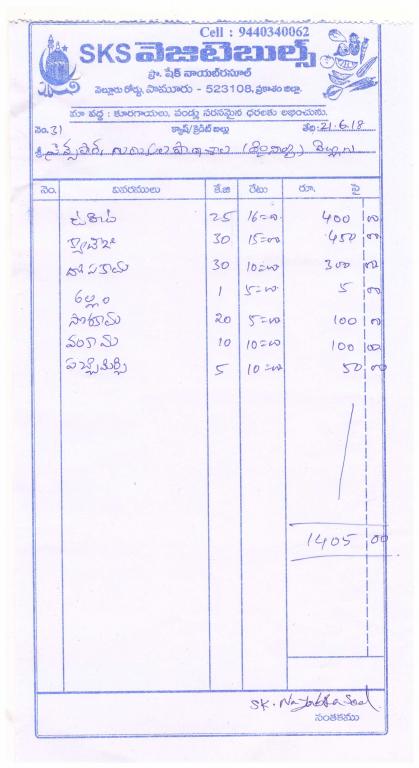 Cell : 9440340062
SKS వెజిటెబుల్స్
ప్రొ. షేక్ నాయబ్‌రసూల్
నెల్లూరు రోడ్డు, పామూరు - 523108, ప్రకాశం జిల్లా.
మా వద్ద : కూరగాయలు, పండ్లు సరసమైన ధరలకు లభించును.
నెం. 31 క్యాష్/క్రెడిట్ బిల్లు తేది: 21.6.18
శ్రీ
నెం. వివరములు కే.జి రేటు రూ. పై
25 16=00 400 00
30 15=00 450 00
30 10=00 300 00
అల్లం 1 5=00 5 00
20 5=00 100 00
వంకాయ 10 10=00 100 00
పచ్చిమిర్చి 5 10=00 50 00
1405 00
SK.
సంతకము